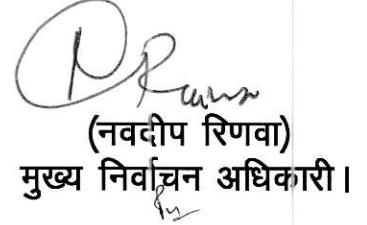 (नवदीप रिणवा)
मुख्य निर्वाचन अधिकारी।